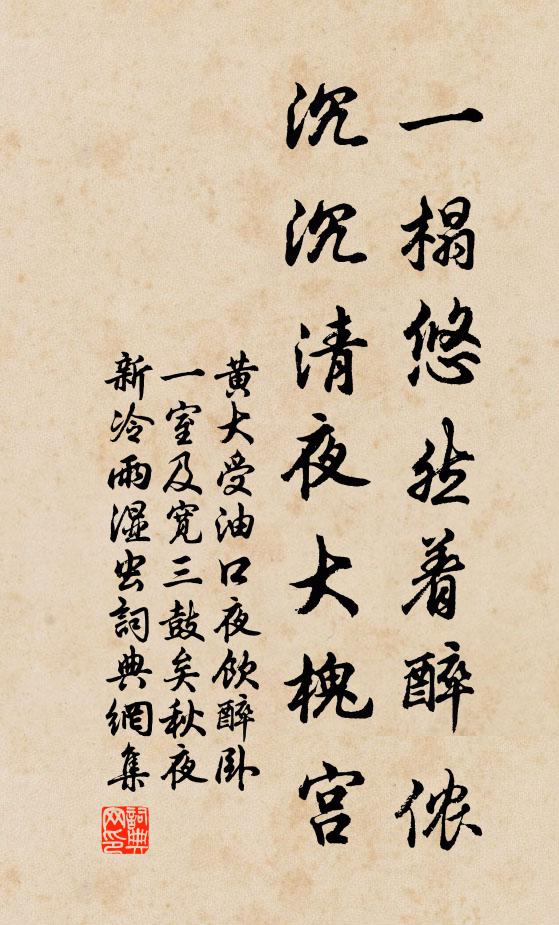 一榻悠然着醉侬
沉沉清夜大槐宫
黄大受油口夜饮醉卧
一室及寛三鼓矣秋夜
新冷雨湿虫詞典網集
詞典网印